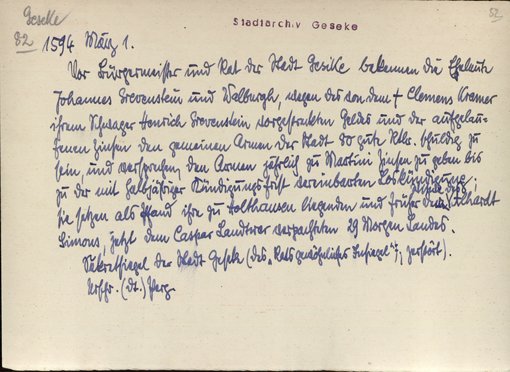 Geseke
82
Stadtarchiv Geseke
82
1594 März 1.
Vor Bürgermeister und Rat der Stadt Geseke bekennen die Eheleute
Johannes Grevenstein und Walburgh, wegen des von dem † Clemens Kremer
ihrem Schwager Henrich Grevenstein vorgestreckten Geldes und der aufgelau-
fenen Zinsen den gemeinen Armen der Stadt 50 gute Rtlr. schuldig zu
sein, und versprechen den Armen jährlich zu Martini Zinsen zu geben bis
zu der mit halbjähriger Kündigungsfrist vereinbarten Loskündigung;
sie setzen als Pfand ihre zu Holthausen liegenden und früher dem
Simons, jetzt dem Caspar Landwer verpachteten 29 Morgen Landes.
Sekretsiegel der Stadt Geseke (des „Rats gewöhnliches Insiegel"), zerstört.
Urschr. (dt.) Perg.